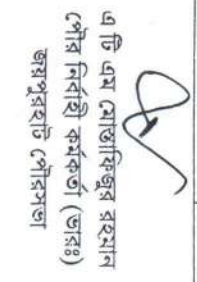 এ টি এম মোস্তাফিজুর রহমান
পৌর নির্বাহী কর্মকর্তা (ভারঃ)
জয়পুরহাট পৌরসভা